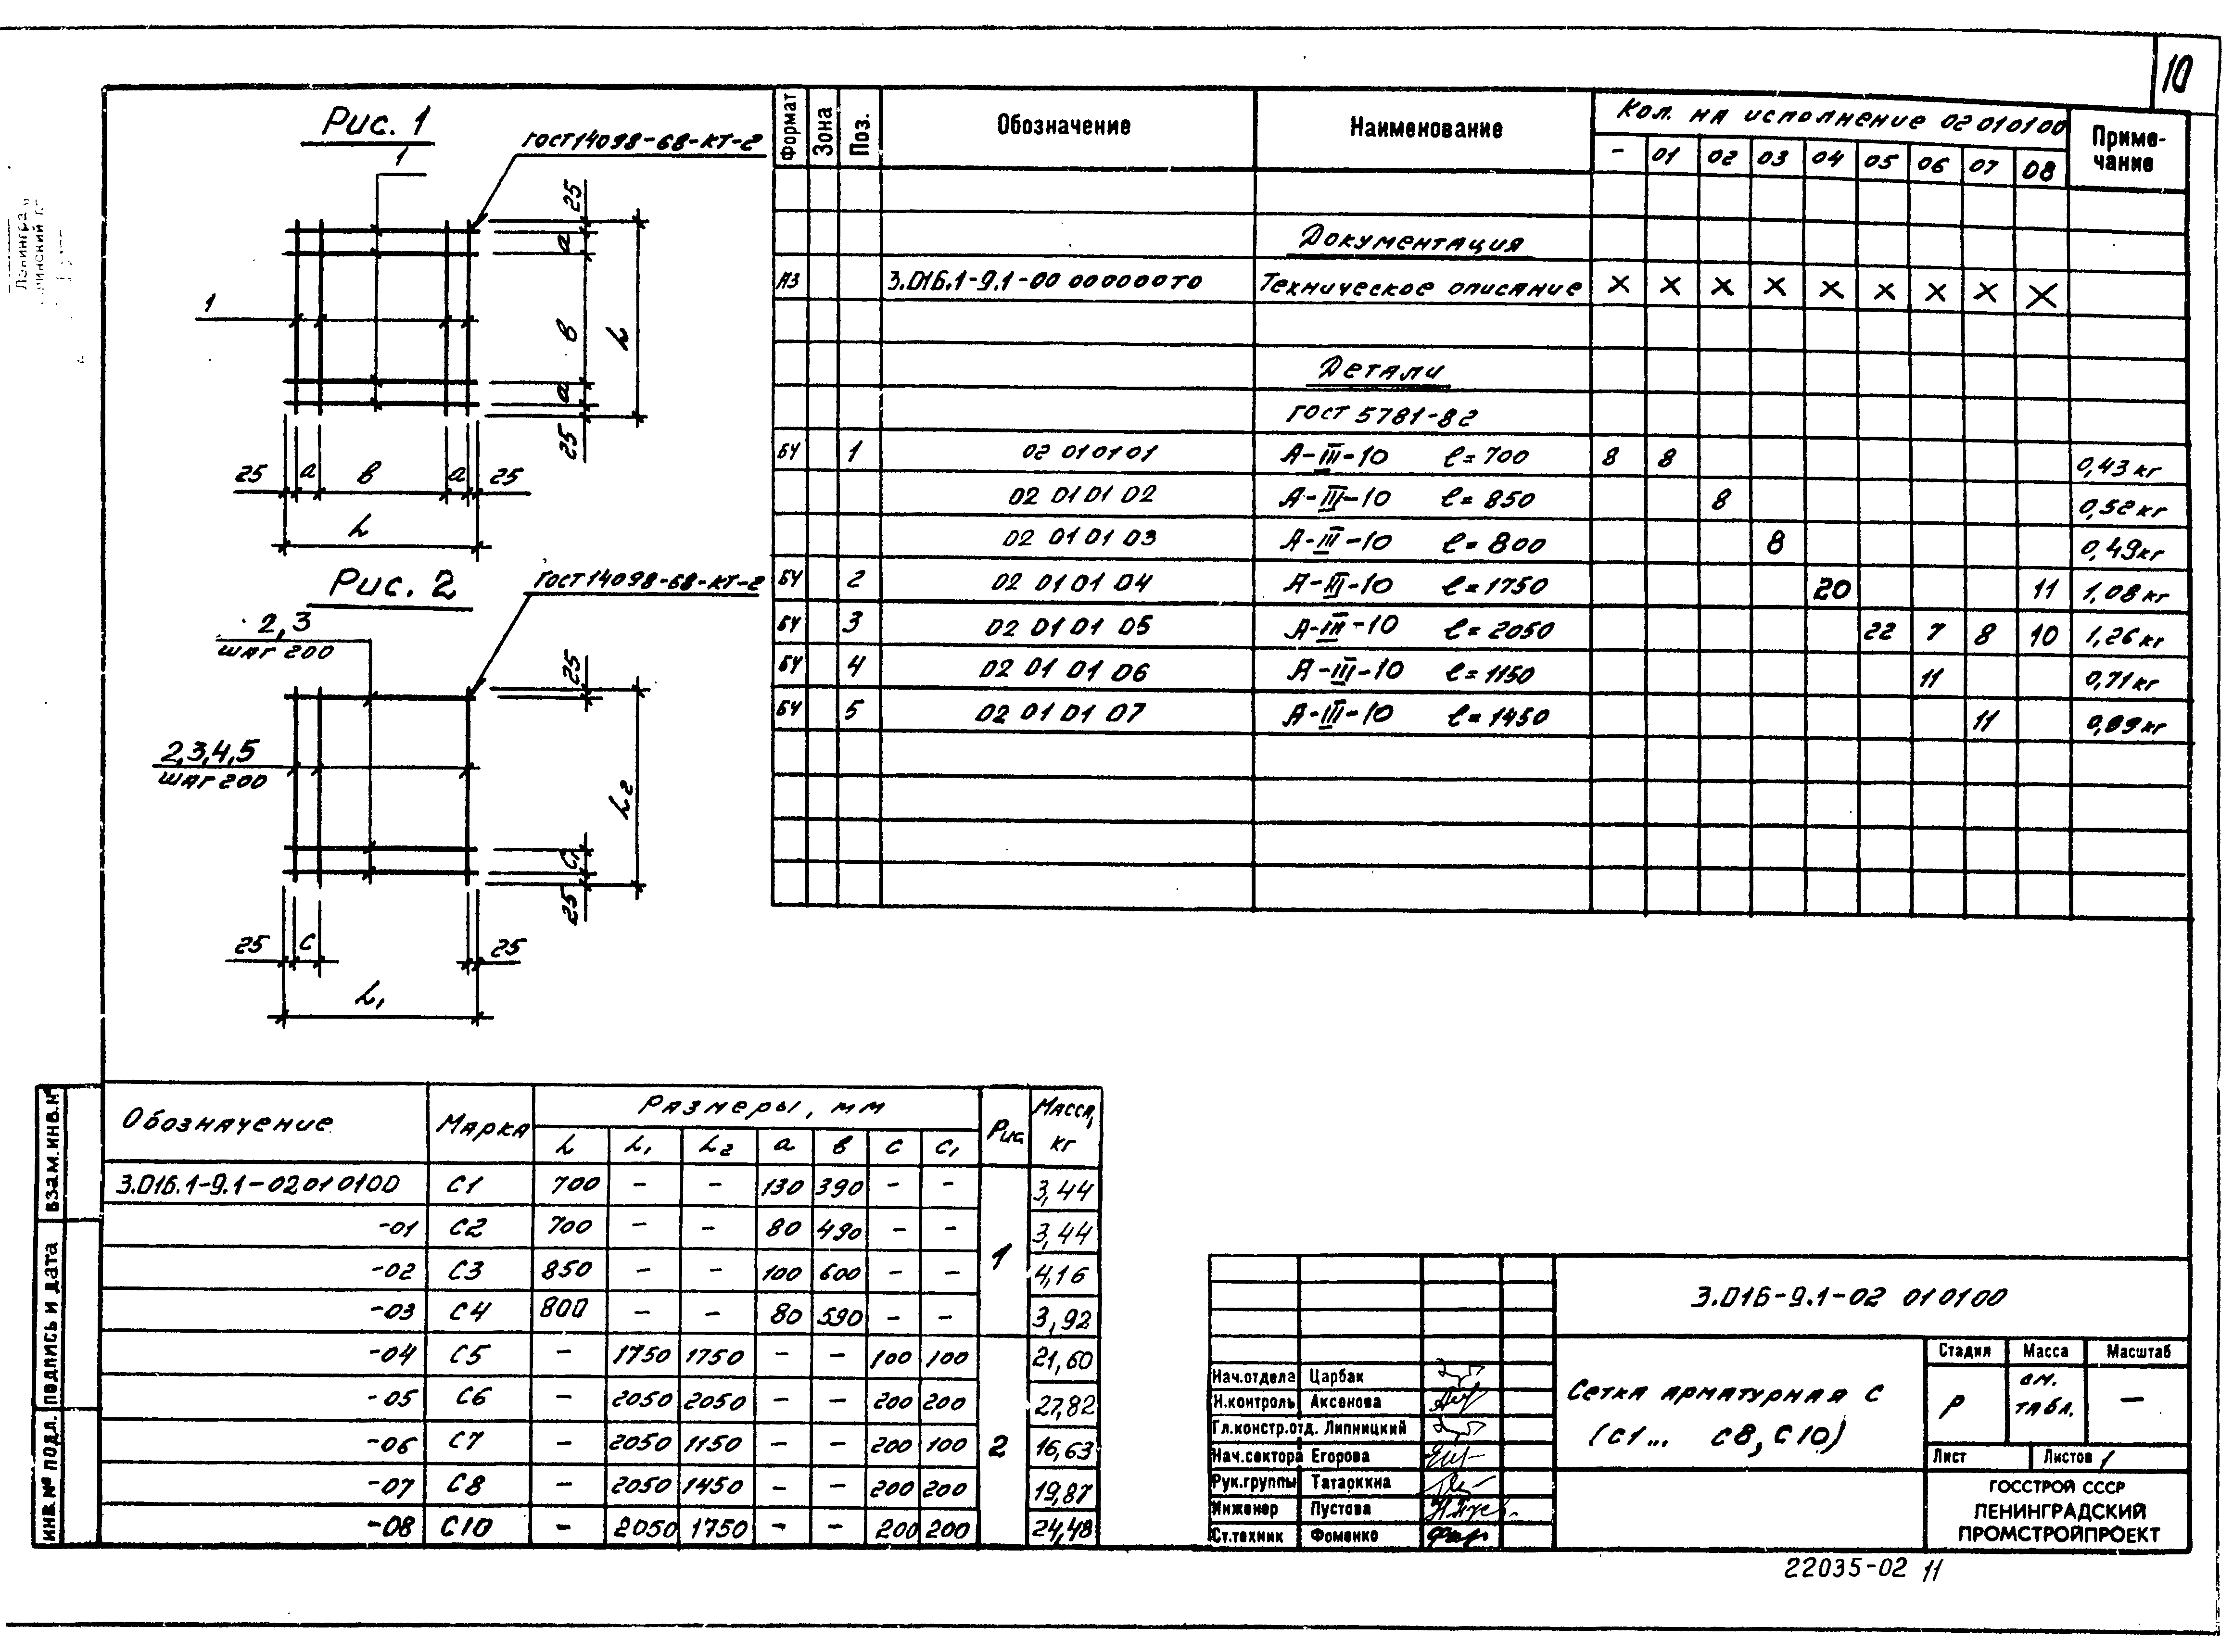 10
Рис. 1
ГОСТ 14098-68-КТ-2
1
1
25
а
в
а
25
L
25 а в а 25
L
Рис. 2
ГОСТ 14098-68-КТ-2
2,3
шаг 200
2,3,4,5
шаг 200
25
L2
C1
25
25 с 25
L1
Формат Зона Поз. Обозначение Наименование Кол. на исполнение 02 010100 Приме-чание
- 01 02 03 04 05 06 07 08
Документация
А3 3.016.1-9.1-00 000000ТО Техническое описание × × × × × × × × ×
Детали
ГОСТ 5781-82
БЧ 1 02 010101 А-III-10 ℓ=700 8 8 0,43 кг
02 01 01 02 А-III-10 ℓ=850 8 0,52 кг
02 01 01 03 А-III-10 ℓ=800 8 0,49 кг
БЧ 2 02 01 01 04 А-III-10 ℓ=1750 20 11 1,08 кг
БЧ 3 02 01 01 05 А-III-10 ℓ=2050 22 7 8 10 1,26 кг
БЧ 4 02 01 01 06 А-III-10 ℓ=1150 11 0,71 кг
БЧ 5 02 01 01 07 А-III-10 ℓ=1450 11 0,89 кг
Обозначение Марка Размеры, мм Рис. Масса, кг
L L1 L2 а в с с1
3.016.1-9.1-02 01 0100 С1 700 - - 130 390 - - 1 3,44
-01 С2 700 - - 80 490 - - 3,44
-02 С3 850 - - 100 600 - - 4,16
-03 С4 800 - - 80 590 - - 3,92
-04 С5 - 1750 1750 - - 100 100 2 21,60
-05 С6 - 2050 2050 - - 200 200 27,82
-06 С7 - 2050 1150 - - 200 100 16,63
-07 С8 - 2050 1450 - - 200 200 19,87
-08 С10 - 2050 1750 - - 200 200 24,48
Взам.инв.№
Подпись и дата
Инв.№ подл.
3.016-9.1-02 010100
Нач.отдела Царбак
Н.контроль Аксенова
Гл.констр.отд. Липницкий
Нач.сектора Егорова
Рук.группы Татаркина
Инженер Пустова
Ст.техник Фоменко
Сетка арматурная С
(С1... С8, С10)
Стадия Масса Масштаб
Р см. табл. —
Лист Листов 1
ГОССТРОЙ СССР
ЛЕНИНГРАДСКИЙ
ПРОМСТРОЙПРОЕКТ
22035-02 11